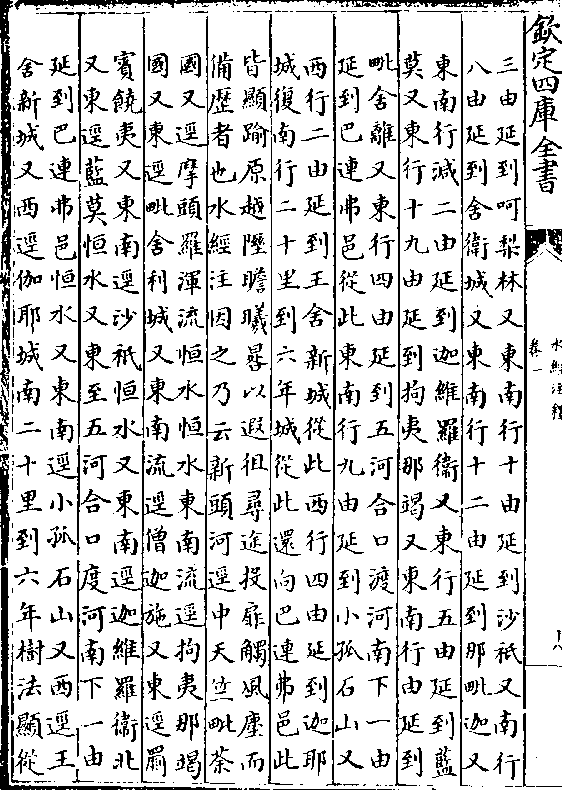 欽定四庫全書
水經注釋
卷一
十八
三由延到呵梨林又東南行十由延到沙祇又南行
八由延到舍衛城又東南行十二由延到那毗迦又
東南行減二由延到迦維羅衛又東行五由延到藍
莫又東行十九由延到拘夷那竭又東南行由延到
毗舍離又東行四由延到五河合口渡河南下一由
延到巴連弗邑從此東南行九由延到小孤石山又
西行二由延到王舍新城從此西行四由延到迦耶
城復南行二十里到六年城從此還向巴連弗邑此
皆顯踰原越隰瞻曦晷以遐徂尋途投扉觸風塵而
備歴者也水經注因之乃云新頭河逕中天竺毗荼
國又逕摩頭羅渾流恒水恒水東南流逕拘夷那竭
國又東逕毗舍利城又東南流逕僧迦施又東逕罽
賓饒夷又東南逕沙祇恒水又東南逕迦維羅衛北
又東逕藍莫恒水又東至五河合口度河南下一由
延到巴連弗邑恒水又東南逕小孤石山又西逕王
舍新城又西逕伽耶城南二十里到六年樹法顯從